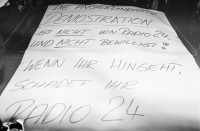 DIE ANGEKÜNDIGTE
DEMOSTRATION
IST NICHT VOM RADIO 24
UND NICHT BEWILLIGT!
WENN IHR HINGEHT,
SCHADET IHR
RADIO 24